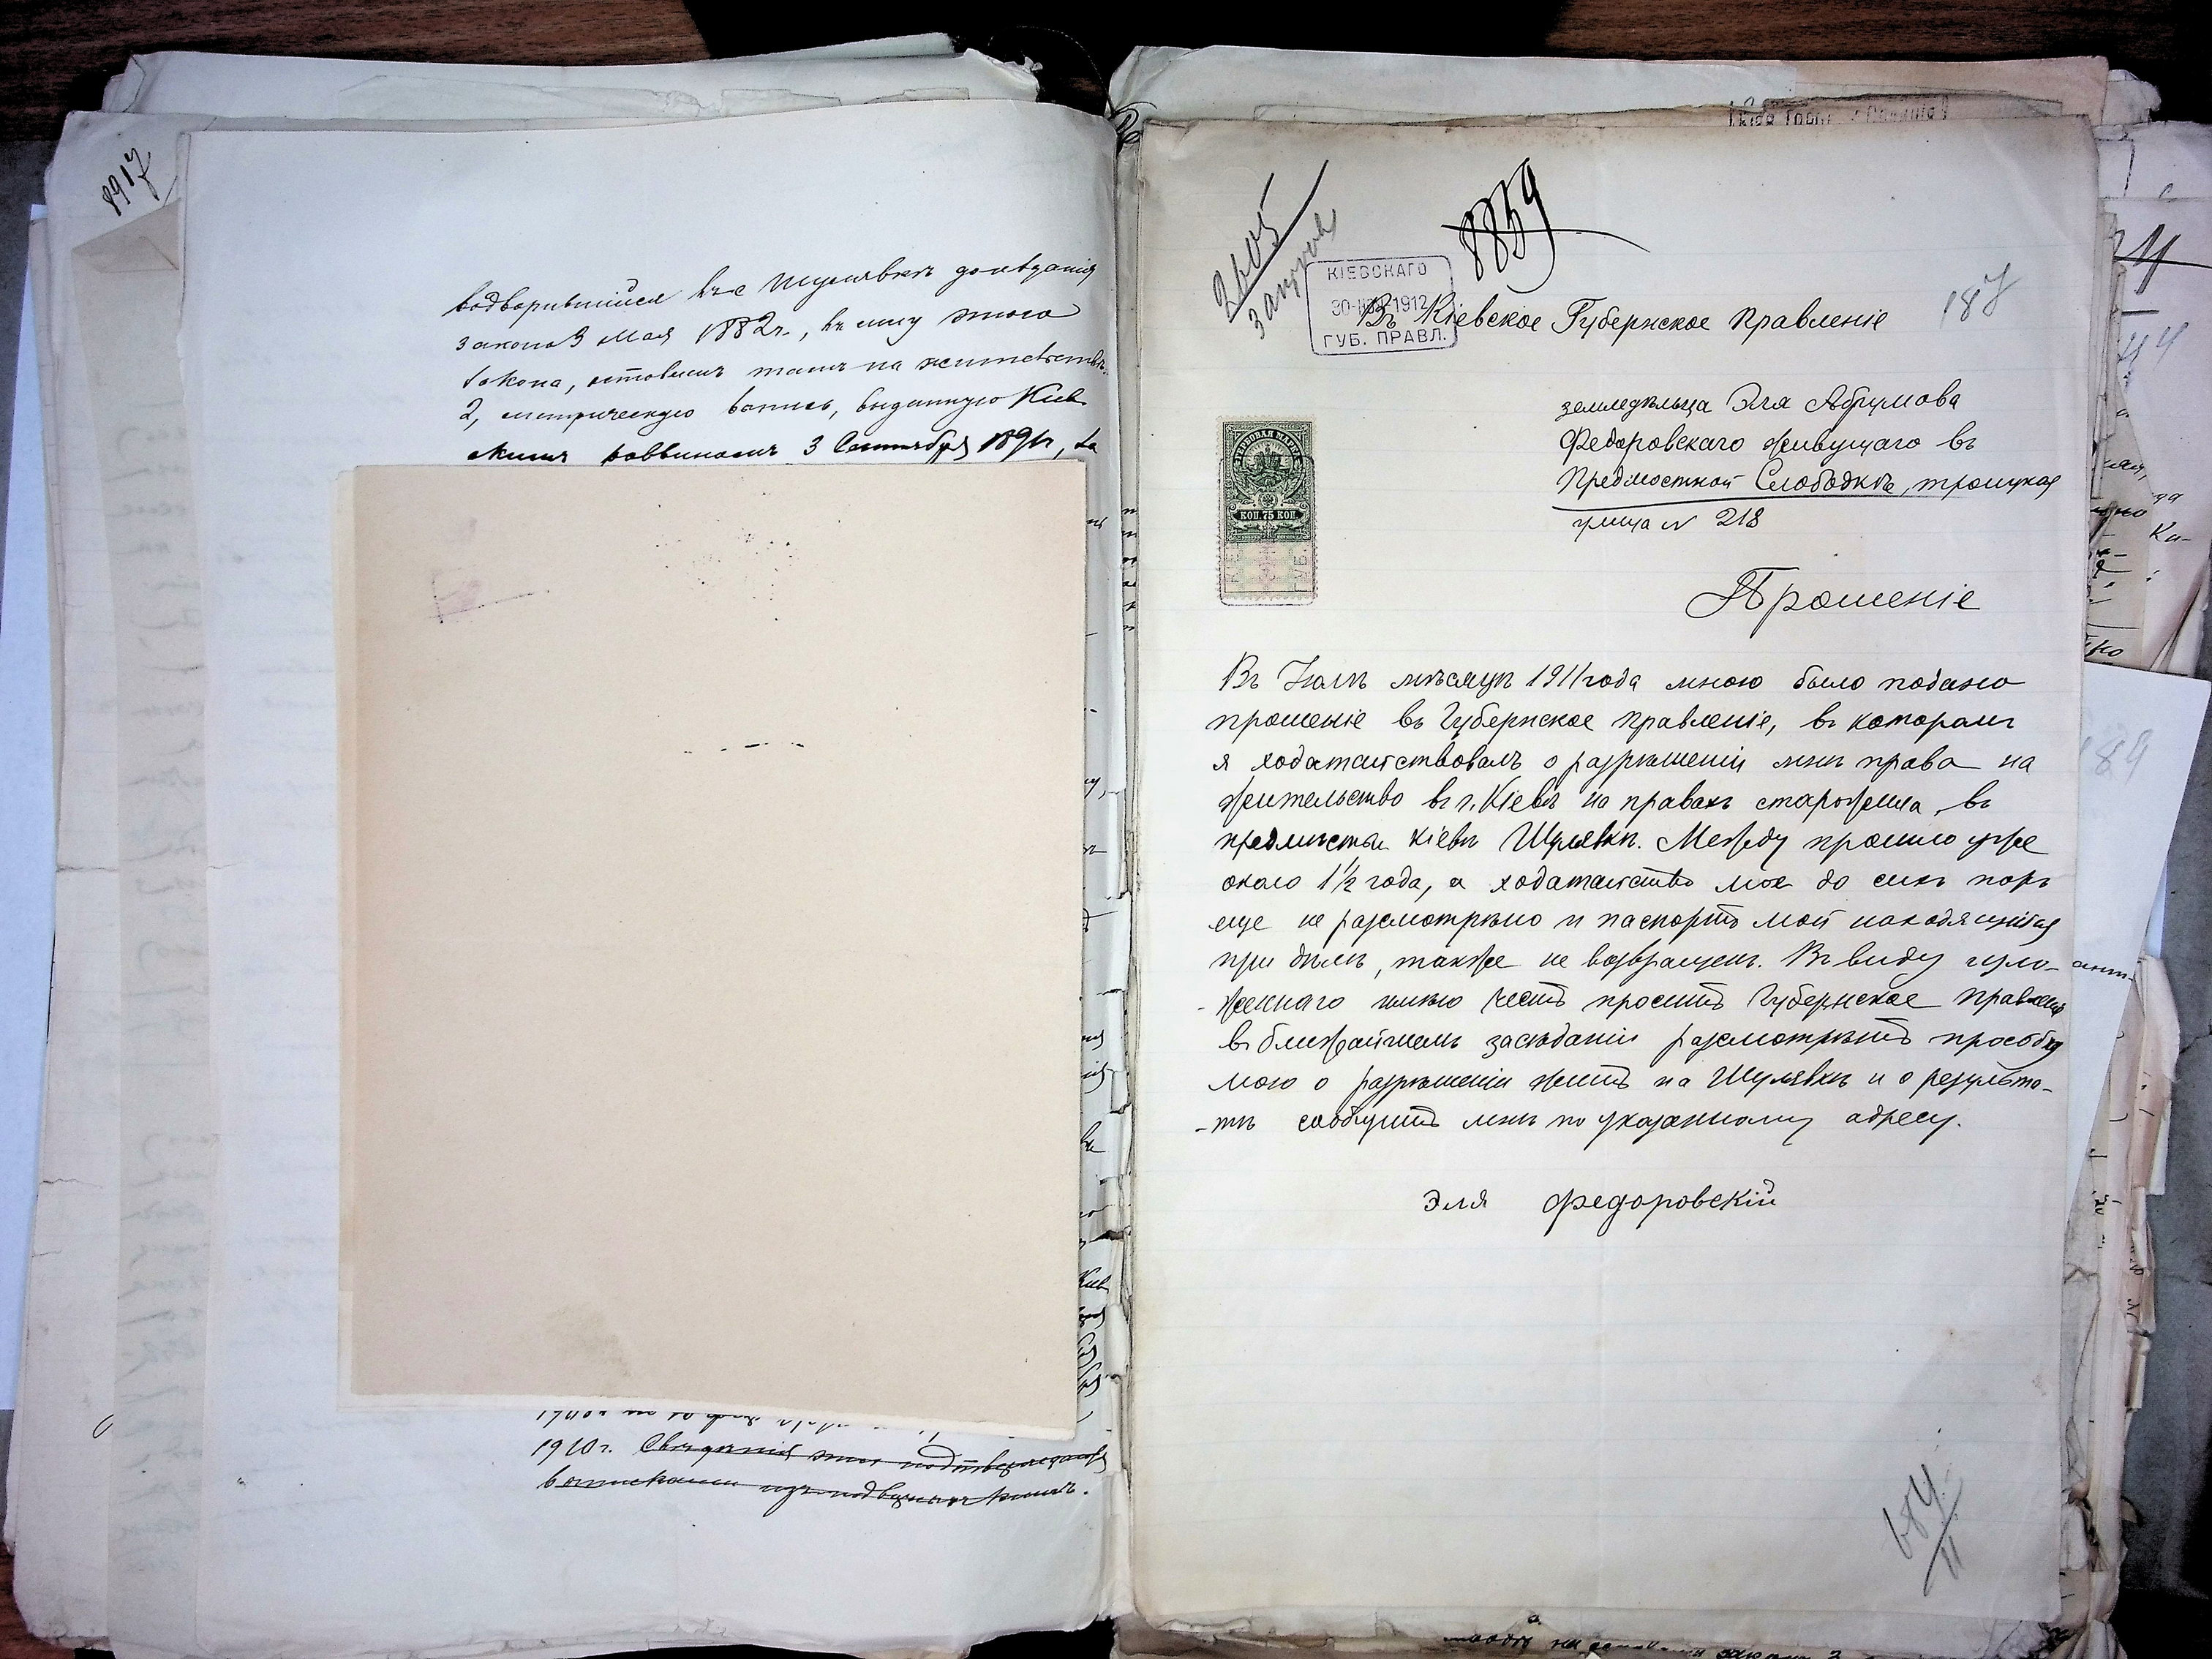 8917
водворившійся въ с Шулявкѣ до изданія
закона 3 Мая 1882 г., въ силу этого
закона, оставленъ тамъ на жительствѣ.
2, метрическую запись, выданную Кіев
скимъ раввиномъ 3 Сентября 1891 г, за
1910 г. Свѣдѣнія эти подтверждаются
выписками изъ подворныхъ книгъ.
2605
3 августа
8859
КІЕВСКАГО
30-ІЮЛ 1912
ГУБ. ПРАВЛ.
Въ Кіевское Губернское Правленіе
187
земледѣльца Эля Абрумова
Федоровскаго живущаго въ
Предмостной Слободкѣ, троицкая
улица N 218
КОП. 75 КОП.
Прошеніе
Въ Іюлѣ мѣсяцѣ 1911 года мною было подано
прошеніе въ Губернское Правленіе, въ которомъ
я ходатайствовалъ о разрѣшеніи мнѣ права на
жительство въ г. Кіевѣ на правахъ старожила, въ
предмѣстьи Кіевѣ Шулявкѣ. Между прошло уже
около 1½ года, а ходатайство мое до сихъ поръ
еще не разсмотрѣно и паспортъ мой находящійся
при дѣлѣ, также не возвращенъ. Въ виду изло-
-женнаго имѣю честь просить Губернское Правленіе
въ ближайшемъ засѣданіи разсмотрѣть просьбу
мою о разрѣшеніи жить на Шулявкѣ и о результа-
-тѣ сообщить мнѣ по указанному адресу.
Эля Федоровскій
684/11
189